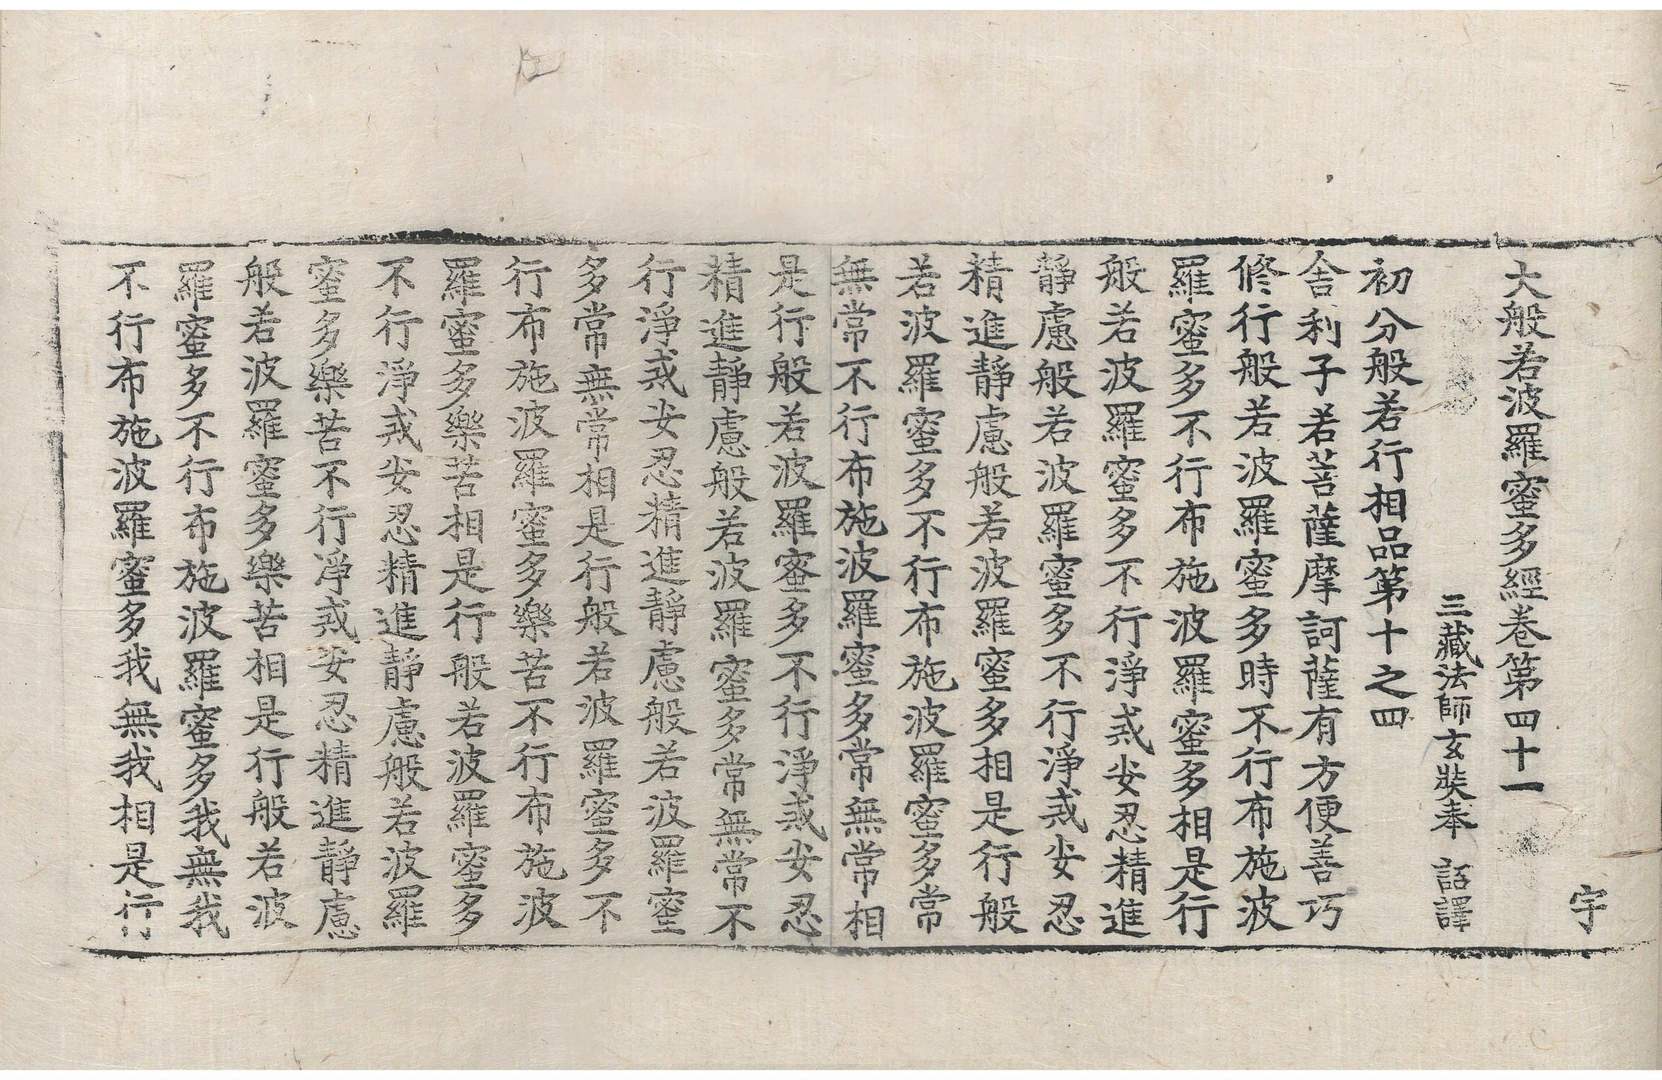 宇
大般若波羅蜜多經卷第四十一
三藏法師玄奘奉 詔譯
初分般若行相品第十之四
舍利子若菩薩摩訶薩有方便善巧
修行般若波羅蜜多時不行布施波
羅蜜多不行布施波羅蜜多相是行
般若波羅蜜多不行淨戒安忍精進
靜慮般若波羅蜜多不行淨戒安忍
精進靜慮般若波羅蜜多相是行般
若波羅蜜多不行布施波羅蜜多常
無常不行布施波羅蜜多常無常相
是行般若波羅蜜多不行淨戒安忍
精進靜慮般若波羅蜜多常無常不
行淨戒安忍精進靜慮般若波羅蜜
多常無常相是行般若波羅蜜多不
行布施波羅蜜多樂苦不行布施波
羅蜜多樂苦相是行般若波羅蜜多
不行淨戒安忍精進靜慮般若波羅
蜜多樂苦不行淨戒安忍精進靜慮
般若波羅蜜多樂苦相是行般若波
羅蜜多不行布施波羅蜜多我無我
不行布施波羅蜜多我無我相是行